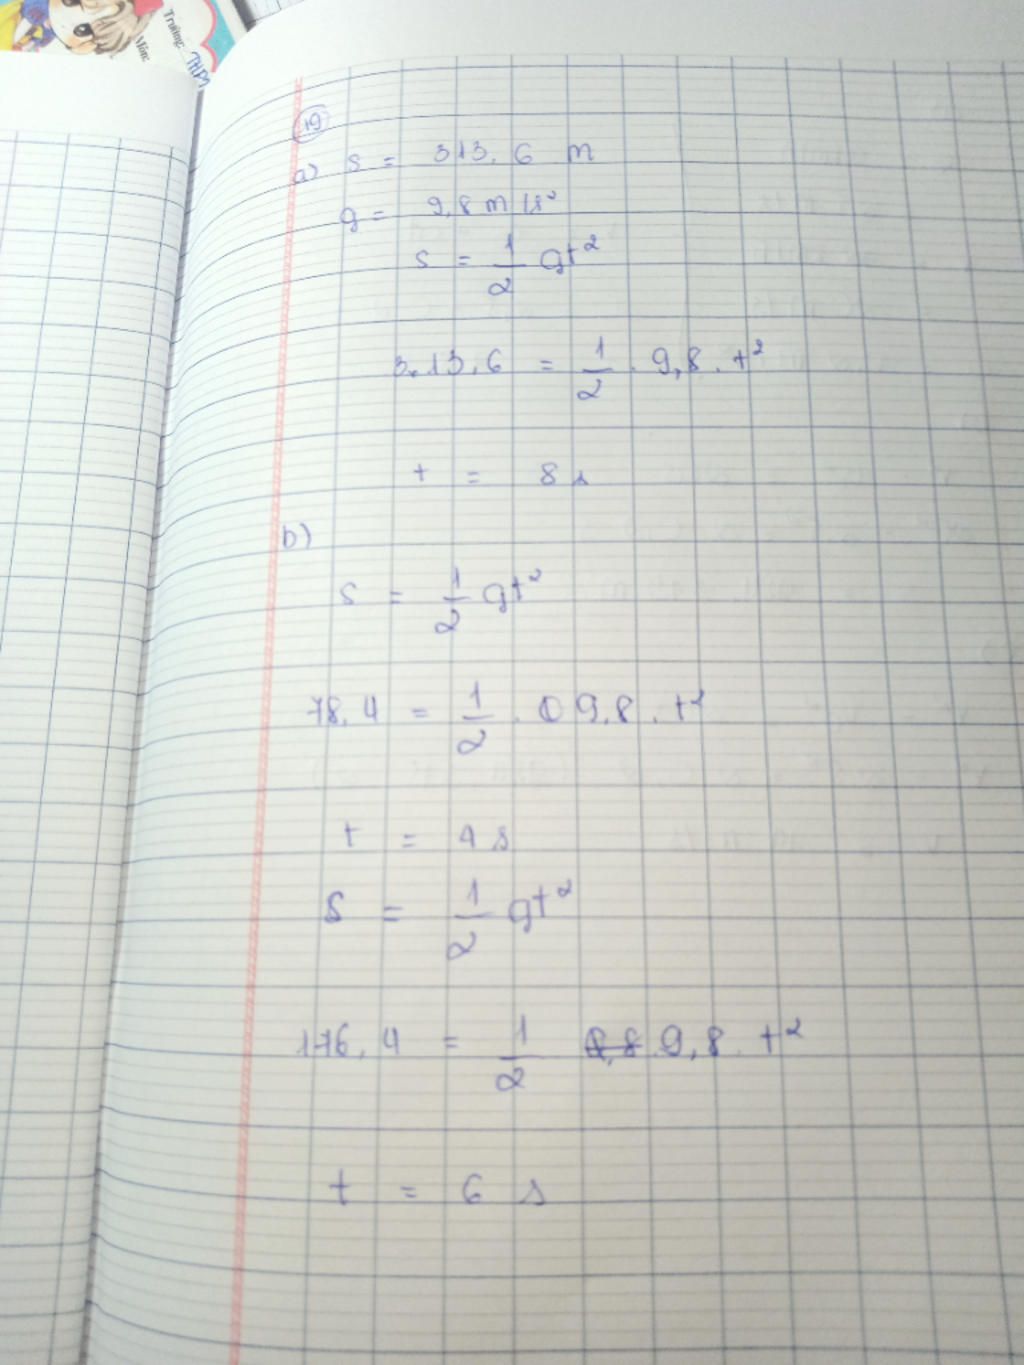 Trường: THPT
Môn:
19
a) s = 313,6 m
g = 9,8 m/s²
s = 1/2 gt²
3.13,6 = 1/2 . 9,8 . t²
t = 8 s
b)
s = 1/2 gt²
78,4 = 1/2 . 9,8 . t²
t = 4 s
s = 1/2 gt²
176,4 = 1/2 9,8 . t²
t = 6 s